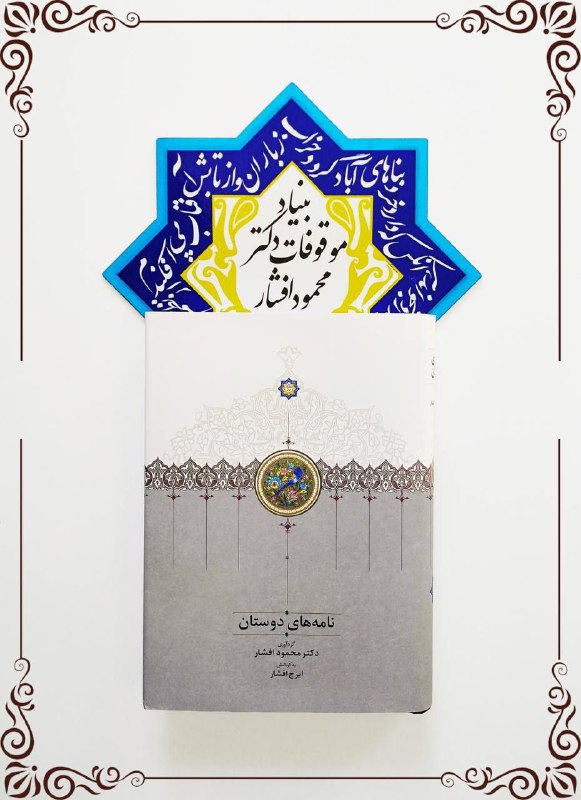 بناهای آباد گردد خراب
ز باران و از تابش آفتاب
پی افکندم از نظم
بنیاد
موقوفات دکتر
محمود افشار
نامه‌های دوستان
گردآوری
دکتر محمود افشار
به کوشش
ایرج افشار